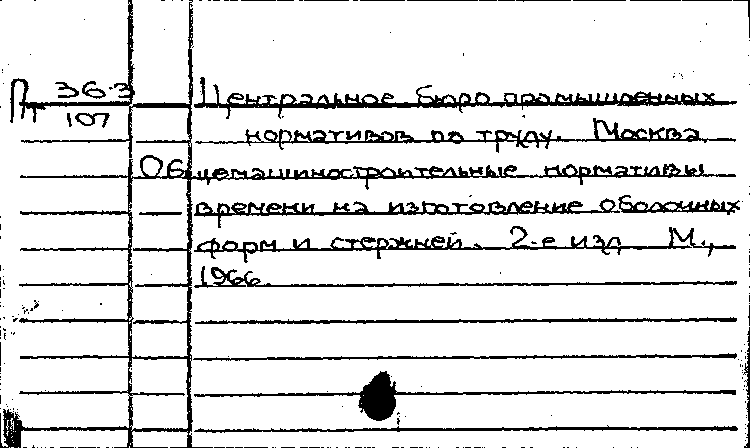 Пт 363/107 Центральное бюро промышленных
нормативов по труду. Москва
Общемашиностроительные нормативы
времени на изготовление оболочных
форм и стержней. 2-е изд М.,
1966.